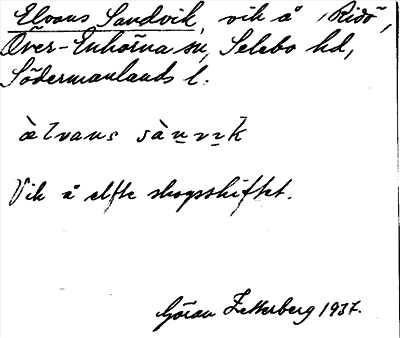 Elvans Sandvik, vik å Ridö,
Över-Enhörna sn, Selebo hd,
Södermanlands l.
àlvans sànvik
Vik å elfte skogsskiftet.
Göran Zetterberg 1937.